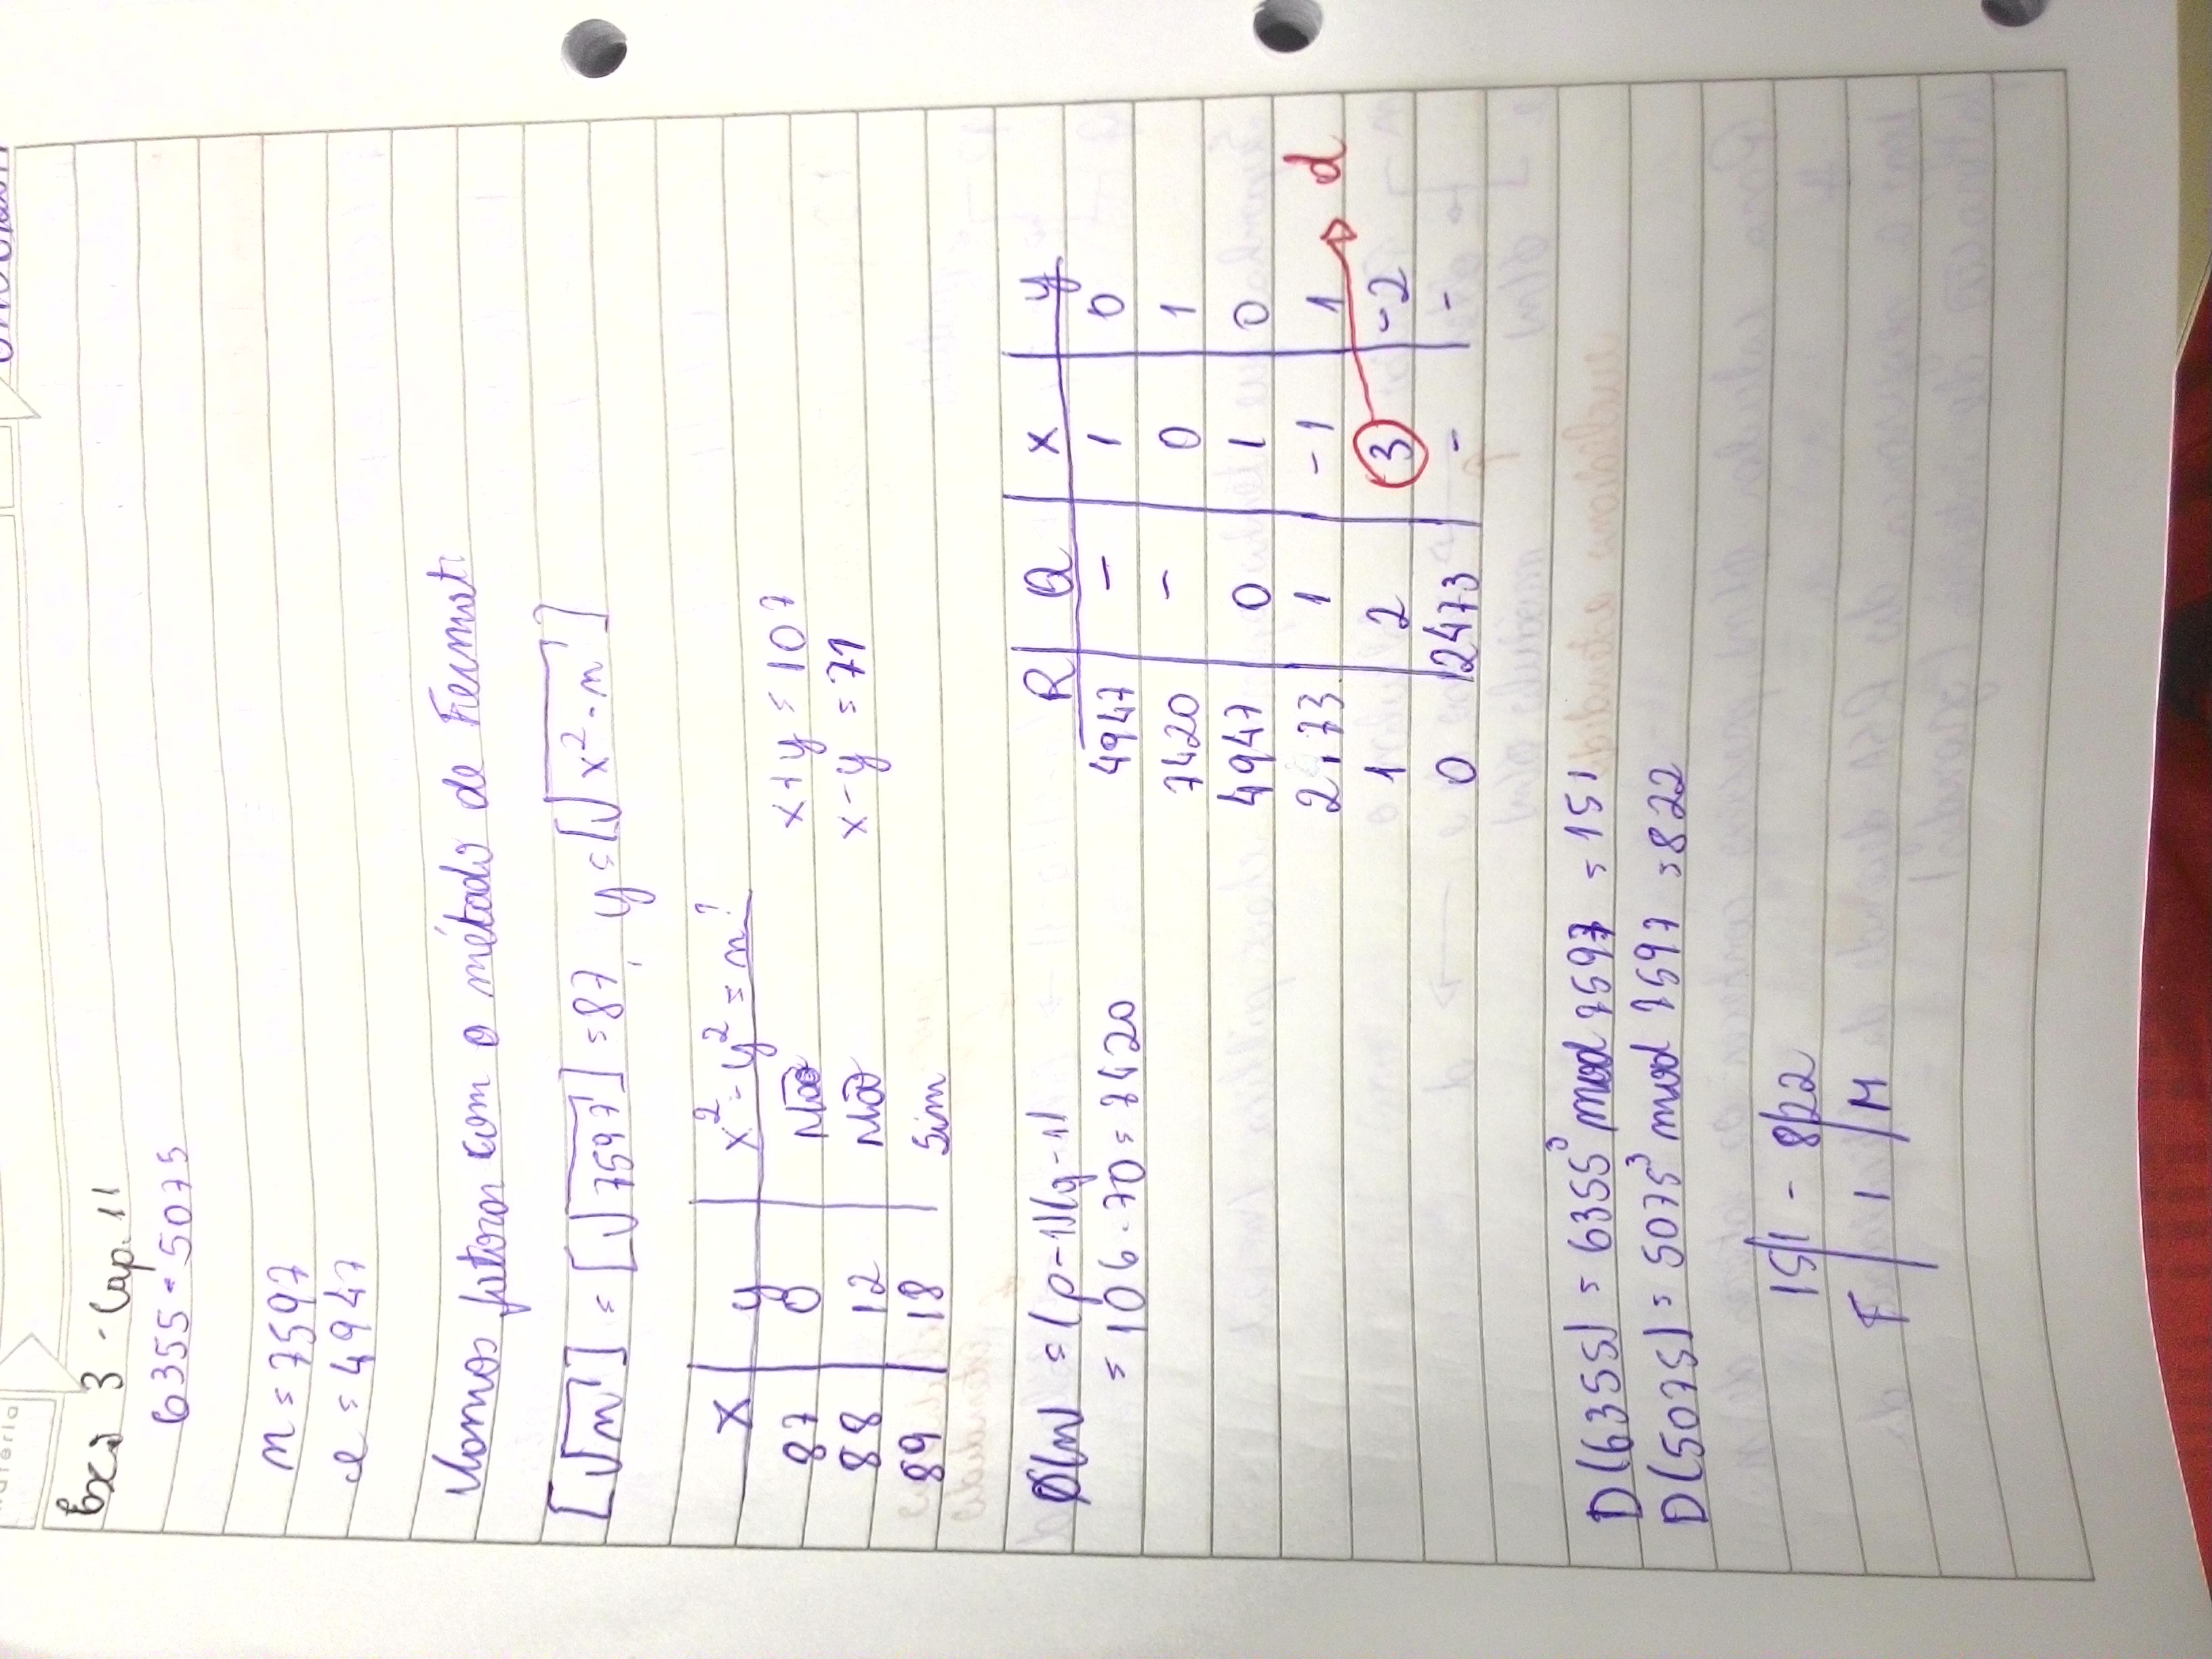 Exº 3 - Cap. 11
6355 - 5075
n = 7597
e = 4947
Vamos fatorar com o método de Fermat:
[√n] = [√7597] = 87, y = [√x² - n]
x | y | x² - y² = n?
87 | 0 | Não
88 | 12 | Não
89 | 18 | Sim
x + y = 107
x - y = 71
Ø(n) = (p-1)(q-1)
= 106 . 70 = 7420
R | Q | x | y
4947 | - | 1 | 0
7420 | - | 0 | 1
4947 | 0 | 1 | 0
2473 | 1 | -1 | 1
1 | 2 | 3 | -2
0 | 2473 | - | -
d
D(6355) = 6355³ mod 7597 = 151
D(5075) = 5075³ mod 7597 = 822
15/1 - 8/22
F | I | M